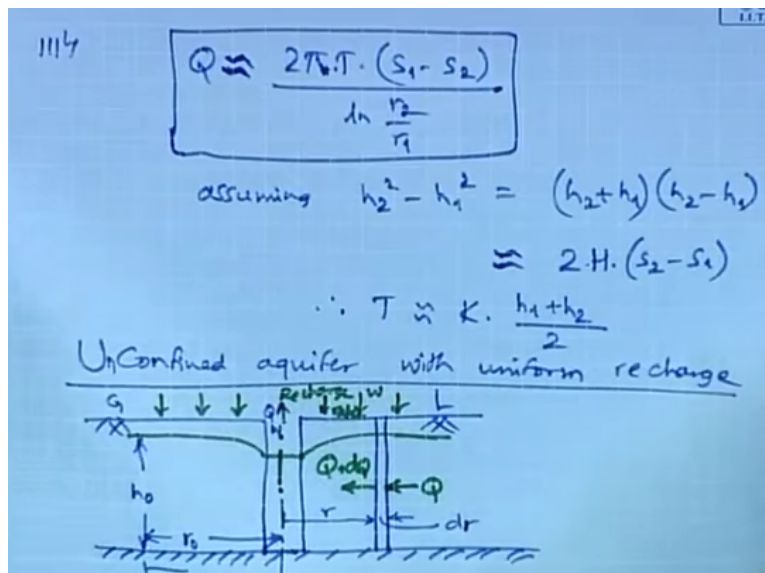 I.I.T.
IIIly
Q ≈ 2π.T. (S1 - S2) / ln r2/r1
assuming h2² - h1² = (h2+h1)(h2-h1)
≈ 2.H. (S2 - S1)
∴ T ≈ K. h1+h2 / 2
UnConfined aquifer with uniform recharge
G Recharge W L
Q
Q+dQ Q
h0 r0 r dr